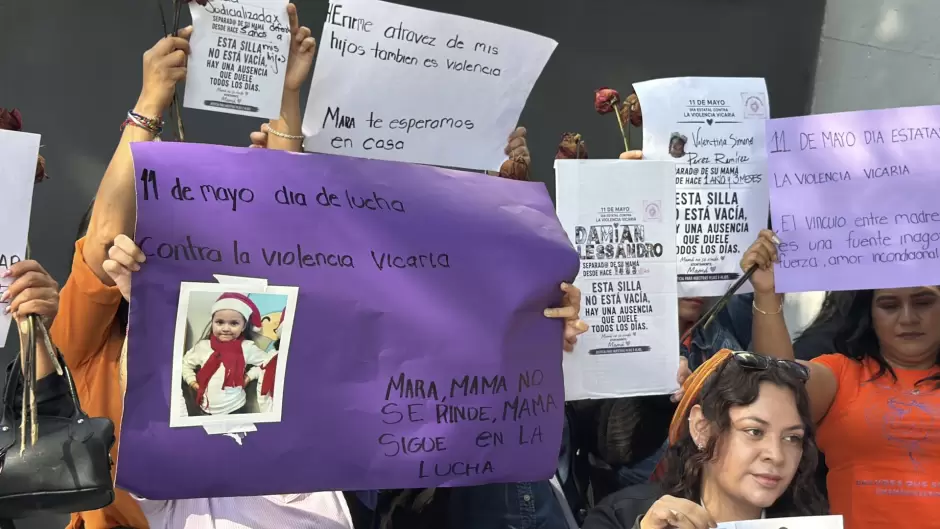 Judicializadx
SEPARAD@ DE SU MAMÁ
DESDE HACE 5 años
ESTA SILLA
NO ESTÁ VACÍA,
HAY UNA AUSENCIA
QUE DUELE
TODOS LOS DÍAS.
mis
hijos
Herirme atravez de mis
hijos tambien es violencia
Mara te esperamos
en casa
11 de mayo dia de lucha
contra la violencia vicaria
MARA, MAMA NO
SE RINDE, MAMA
SIGUE EN LA
LUCHA
11 DE MAYO
DÍA ESTATAL CONTRA
LA VIOLENCIA VICARIA
DAMIAN
ALESSANDRO
SEPARAD@ DE SU MAMÁ
DESDE HACE
ESTA SILLA
NO ESTÁ VACÍA,
HAY UNA AUSENCIA
QUE DUELE
TODOS LOS DÍAS.
Mamá
11 DE MAYO
DÍA ESTATAL CONTRA
LA VIOLENCIA VICARIA
Valentina Simone
Perez Ramirez
SEPARAD@ DE SU MAMÁ
DESDE HACE 1 AÑO Y 3 MESES
ESTA SILLA
NO ESTÁ VACÍA,
HAY UNA AUSENCIA
QUE DUELE
TODOS LOS DÍAS.
Mamá
11 DE MAYO DIA ESTATAL
LA VIOLENCIA VICARIA
EL VINCULO ENTRE MADRE
es una fuente inago
fuerza, amor incondicional